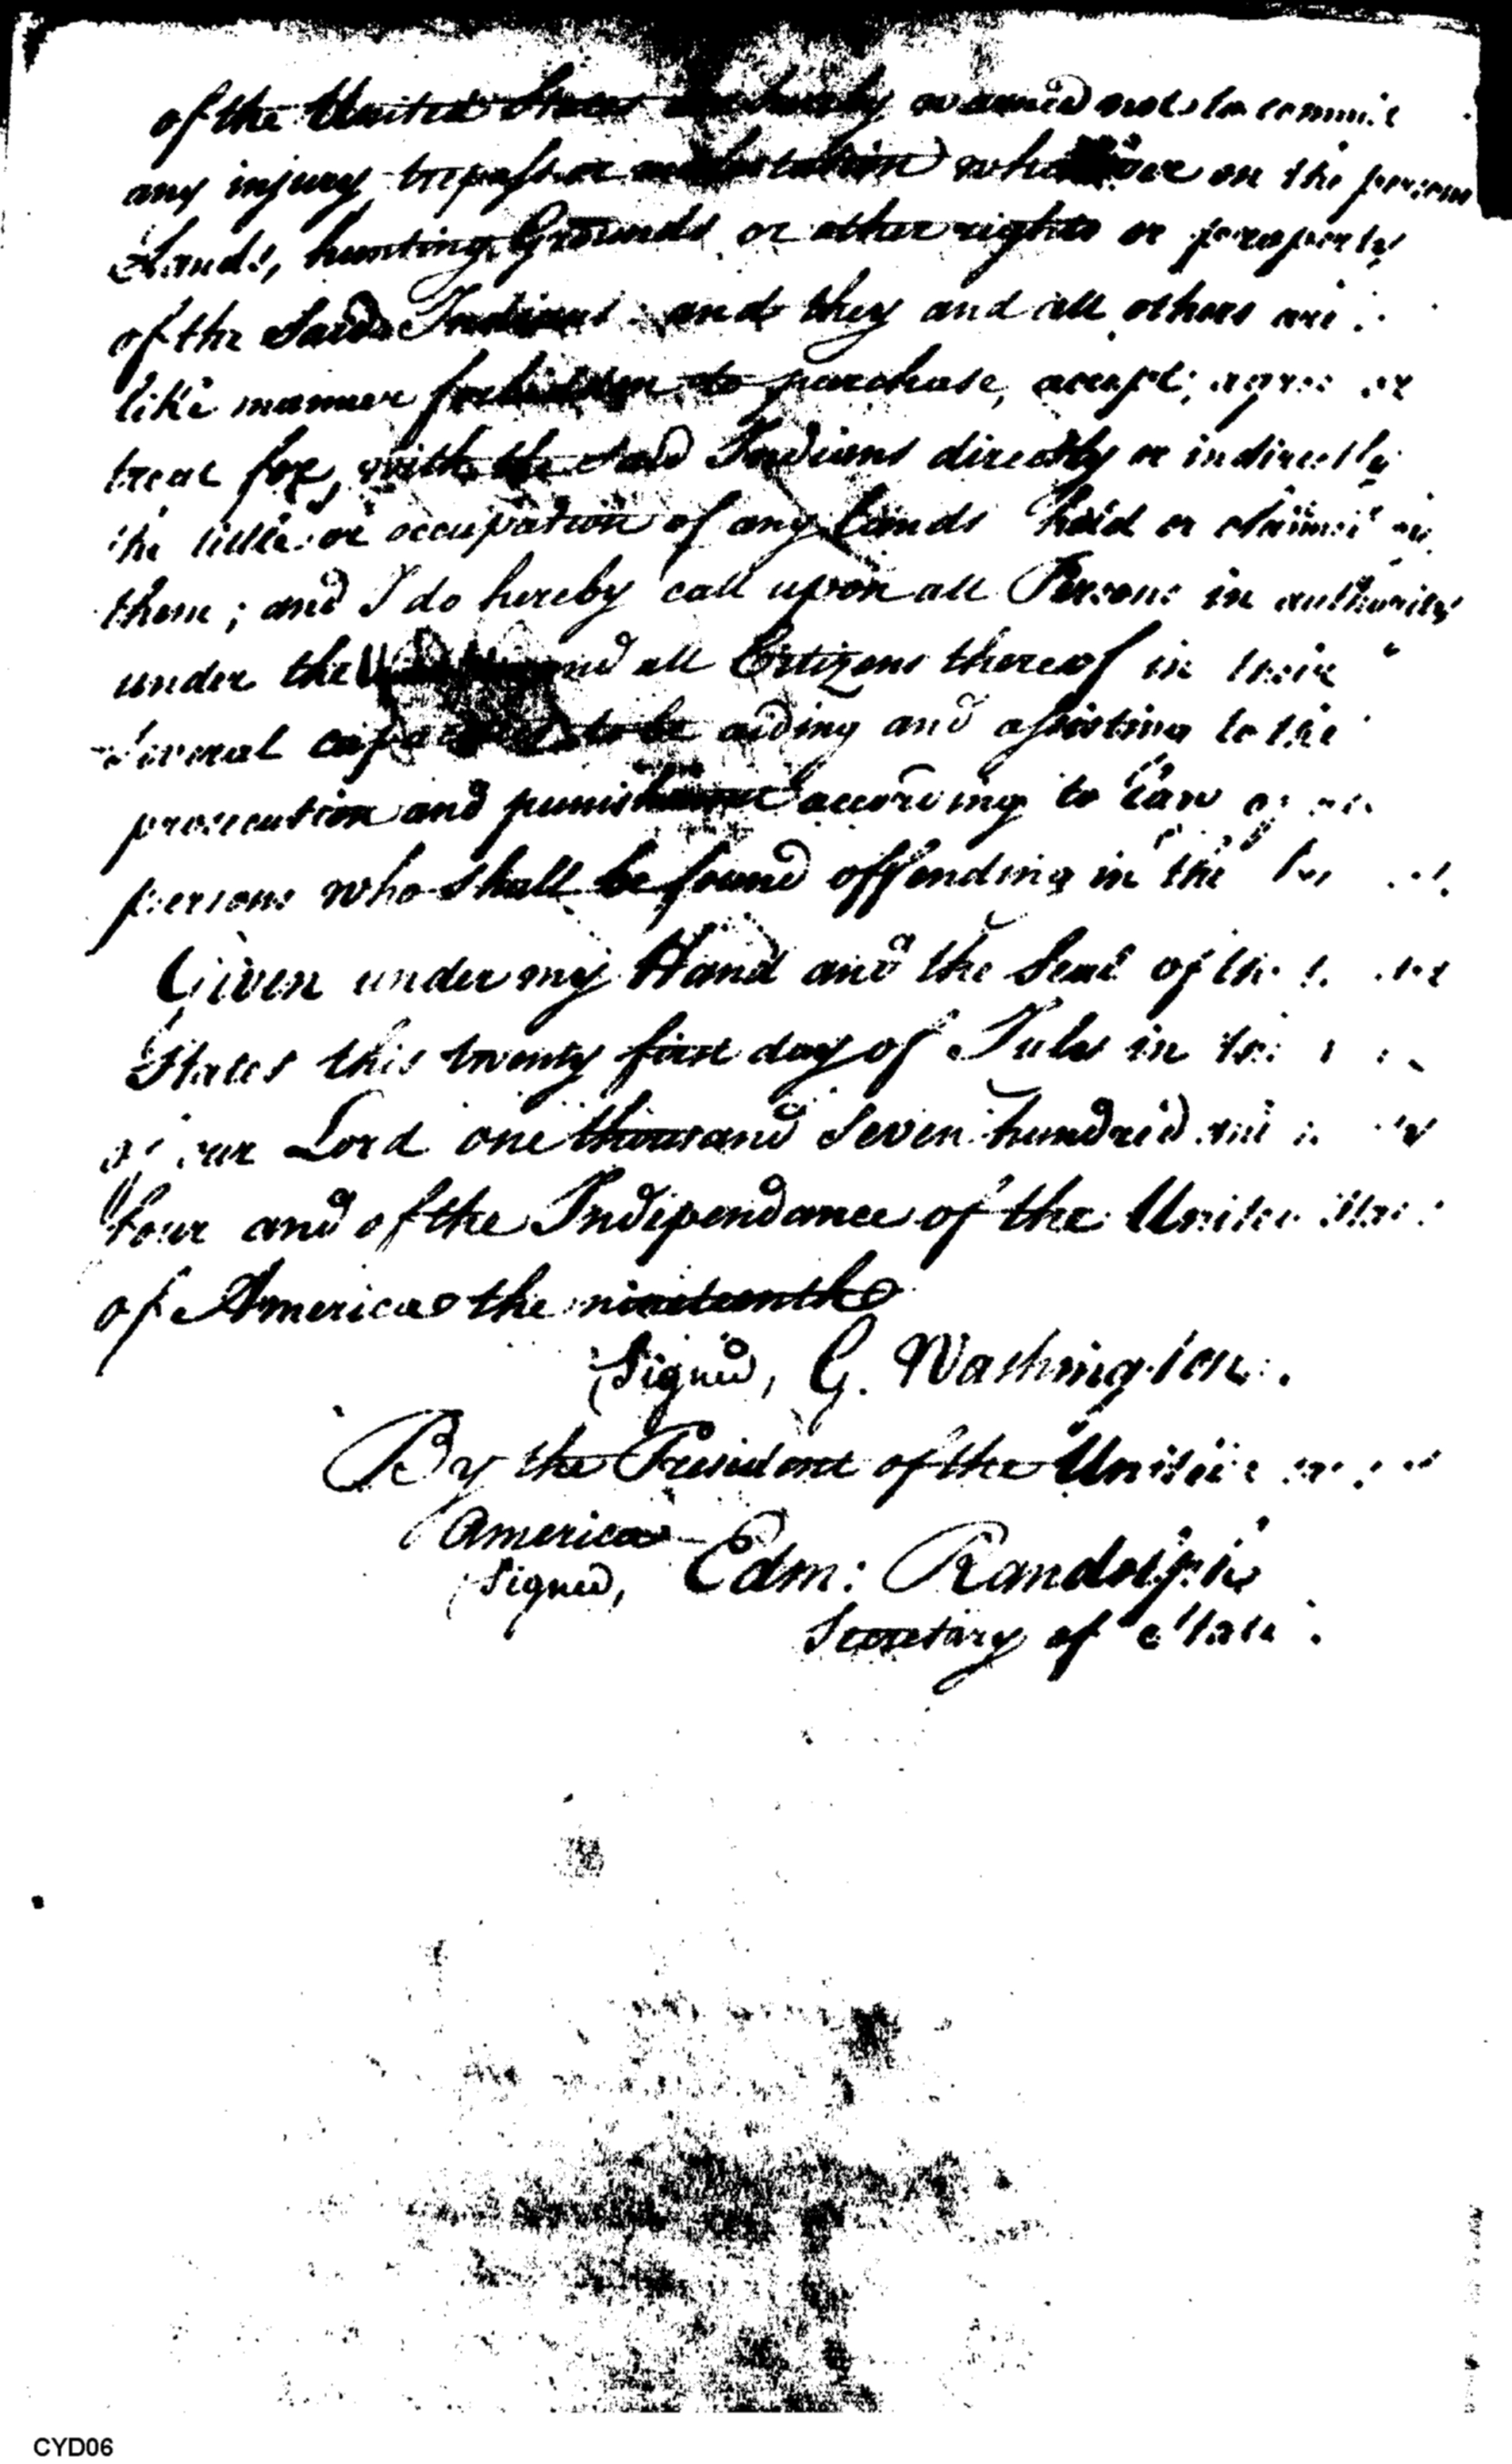 of the United States are hereby warned not to commit
any injury, trespass or molestation whatever on the persons
Lands, hunting Grounds or other rights or property
of the Said Indians and they and all others are
like manner forbidden to purchase, accept, agree or
treat for, with the Said Indians directly or indirectly
the title or occupation of any Lands held or claimed by
them; and I do hereby call upon all Persons in authority
under the and all Citizens thereof in their
Several capacities to be aiding and assisting to the
prosecution and punishment according to Law
persons who Shall be found offending in the
Given under my Hand and the Seal of the
States this twenty first day of July in the
of our Lord one thousand Seven hundred
four and of the Independance of the United States
of America the nineteenth
Signed, G. Washington.
By the President of the United
America
Signed, Edm: Randolph
Secretary of State.
CYD06